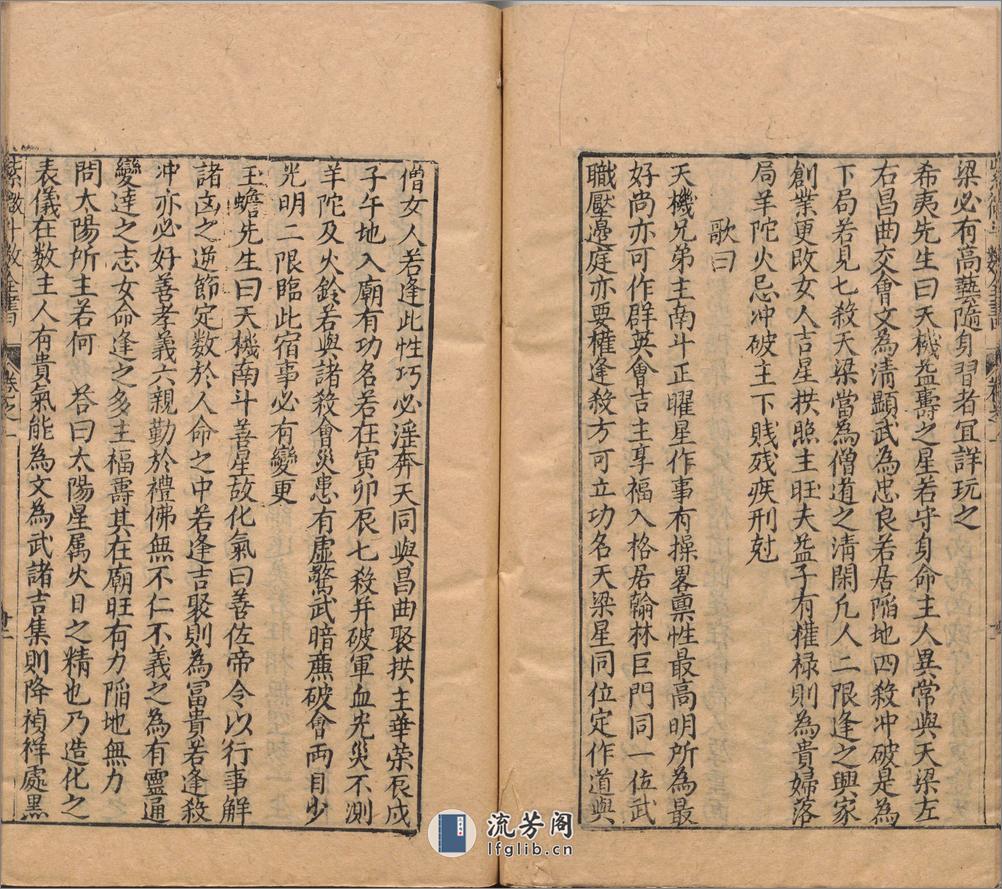 梁必有高藝隨身習者宜詳玩之
希夷先生曰天機益壽之星若守身命主人異常與天梁左
右昌曲交會文為清顯武為忠良若居陷地四殺冲破是為
下局若見七殺天梁當為僧道之清閑凢人二限逢之興家
創業更改女人吉星拱照主旺夫益子有權禄則為貴婦落
局羊陀火忌冲破主下賎残疾刑尅
歌曰
天機兄弟主南斗正曜星作事有操畧禀性最高明所為最
好尚亦可作群英會吉主享福入格居翰林巨門同一位武
職壓邉庭亦要權逢殺方可立功名天梁星同位定作道與
僧女人若逢此性巧必淫奔天同與昌曲聚拱主華荣辰戍
子午地入廟有功名若在寅卯辰七殺并破軍血光災不測
羊陀及火鈴若與諸殺會災患有虚驚武暗亷破會両目少
光明二限臨此宿事必有變更
玉蟾先生曰天機南斗善星故化氣曰善佐帝令以行事解
諸凶之逆節定数於人命之中若逢吉聚則為富貴若逢殺
冲亦必好善孝義六親勤於禮佛無不仁不義之為有靈通
變達之志女命逢之多主福壽其在廟旺有力陷地無力
問太陽所主若何　荅曰太陽星属火日之精也乃造化之
表儀在数主人有貴氣能為文為武諸吉集則降禎祥處黑
紫微斗数全書
卷之一
流芳阁
lfglib.cn